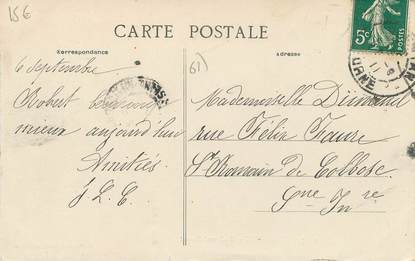 15€
CARTE POSTALE
Correspondance
Adresse
61)
5c
POSTES
ORNE
6 Septembre
Robert
mieux aujourd'hui
Amitiés
J. L. C.
Mademoiselle
rue Félix Faure
St Romain de Colbosc
Sne Inre